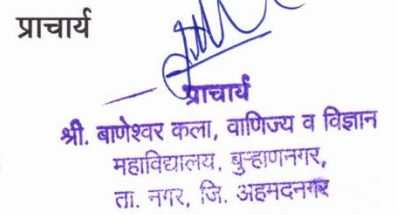 प्राचार्य
प्राचार्य
श्री. बाणेश्वर कला, वाणिज्य व विज्ञान
महाविद्यालय, बुऱ्हाणनगर,
ता. नगर, जि. अहमदनगर